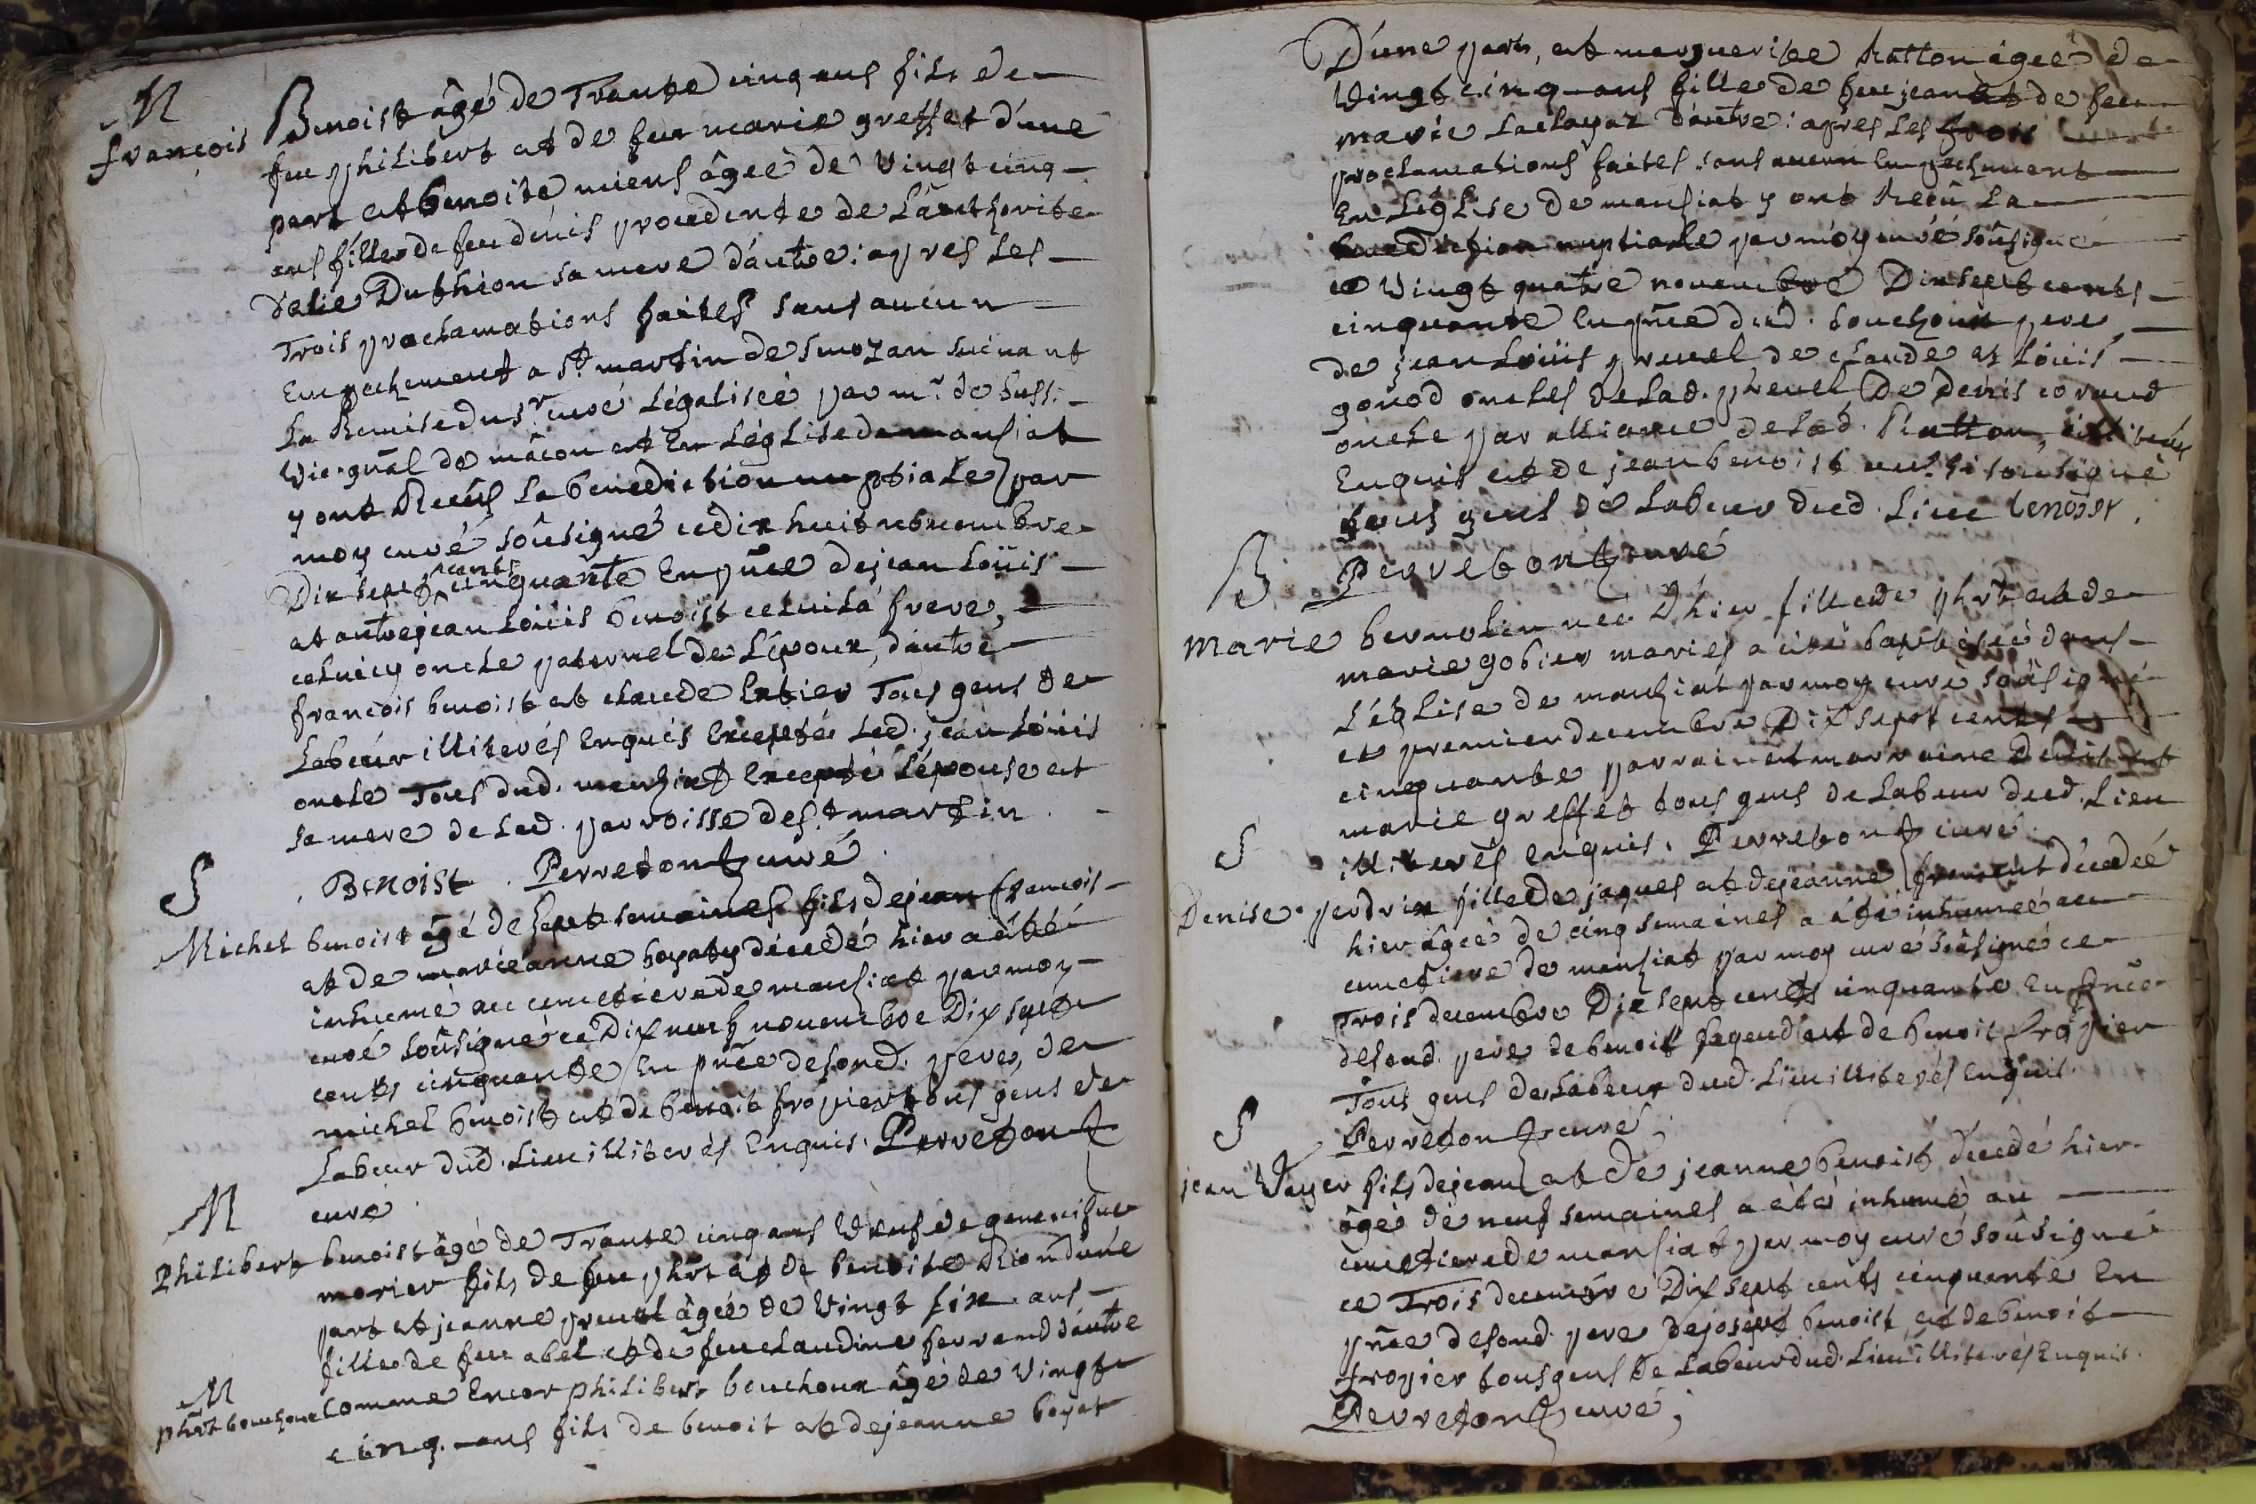 M
françois Benoist âgé de Trante cinq ans fils de
feu philibert et de feue marie greffet d'une
part et benoite miens âgée de vingt cinq
ans fille de feu dénis procedente de l'authorité
delie Duthion sa mere d'autre: apres les
Trois proclamations faites sans aucun
Empechement a st martin de senozan suivant
la Remise du sr curé légalisée par mr. de
vic. gñal de mâcon et En léglise de manziat
y ont Reçûs la benediction nuptiale par
moy curé soûsigné ce dix huit novembre
Dix sept cents cinquante En pñce de jean loüis
et autre jean loüis benoist celuila frere,
celuicy oncle paternel de lépoux, d'autre
françois benoist et claude Extier Tous gens de
labeur illiterés Enquis Excepté led. jean loüis
oncle Tous dud. manziat Excepté lépouse et
sa mere de lad. parroisse de st martin.
Benoist. Perreton curé.
S
Michel benoist âgé de sept semaines fils de jean françois
et de marieanne boyat décédé hier a été
inhumé au cimetiere de manziat par moy
curé soûsigné ce Dix neuf novembre Dix sept
cents cinquante En pñce de sond. pere, de
michel benoist et de benoit fropier tous gens de
labeur dud. lieu illiterés Enquis. Perreton
curé
M
philibert benoist âgé de Trante cinq ans veuf de genevieve
morier fils de feu phrt et de benoite Rion d'une
part et jeanne preuel âgée de vingt six ans
fille de feu abel et de feue claudine ferrand d'autre
M
phrt bouchoux Comme Encor philibert bouchoux âgé de vingt
cinq ans fils de benoit et de jeanne boyat
D'une part, et marguerite Ratton âgée de
vingt cinq ans fille de feu jean et de feue
marie laclayaz d'autre: apres les trois
proclamations faites sans aucun Empechement
En léglise de manziat y ont Reçû la
benediction nuptiale par moy curé soûsigné
ce vingt quatre novembre Dix sept cents
cinquante En pñce dud. bouchoux pere,
de jean loüis preuel de claude et loüis
gonod oncles de lad. preuel de denis corand
oncle par alliance de lad. Ratton, illiterés
Enquis et de jean benoist aussi sousigné
tous gens de labeur dud. lieu benoist.
Perreton curé
B
Marie bernolin née D'hier fille de phrt et de
marie gobier mariés a été baptisée dans
l'église de manziat par moy curé soûsigné
ce premier decembre Dix sept cents
cinquante parrain et marraine
marie greffet tous gens de labeur dud. lieu
illiterés enquis. Perreton curé.
S
Denise perdrix fille de jaques et de jeanne froment décédée
hier âgée de cinq semaines a été inhumée au
cimetiere de manziat par moy curé soûsigné ce
Trois decembre Dix sept cents cinquante En pñce
de sond. pere de benoit et de benoit fropier
Tous gens de labeur dud. lieu illiterés Enquis.
Perreton curé.
S
jean Vayer fils de jean et de jeanne benoist décédé hier
âgé de neuf semaines a été inhumé au
cimetiere de manziat par moy curé soûsigné
ce Trois decembre Dix sept cents cinquante En
pñce de sond. pere de joseph benoist et de benoit
fropier tous gens de labeur dud. lieu illiterés Enquis.
Perreton curé;